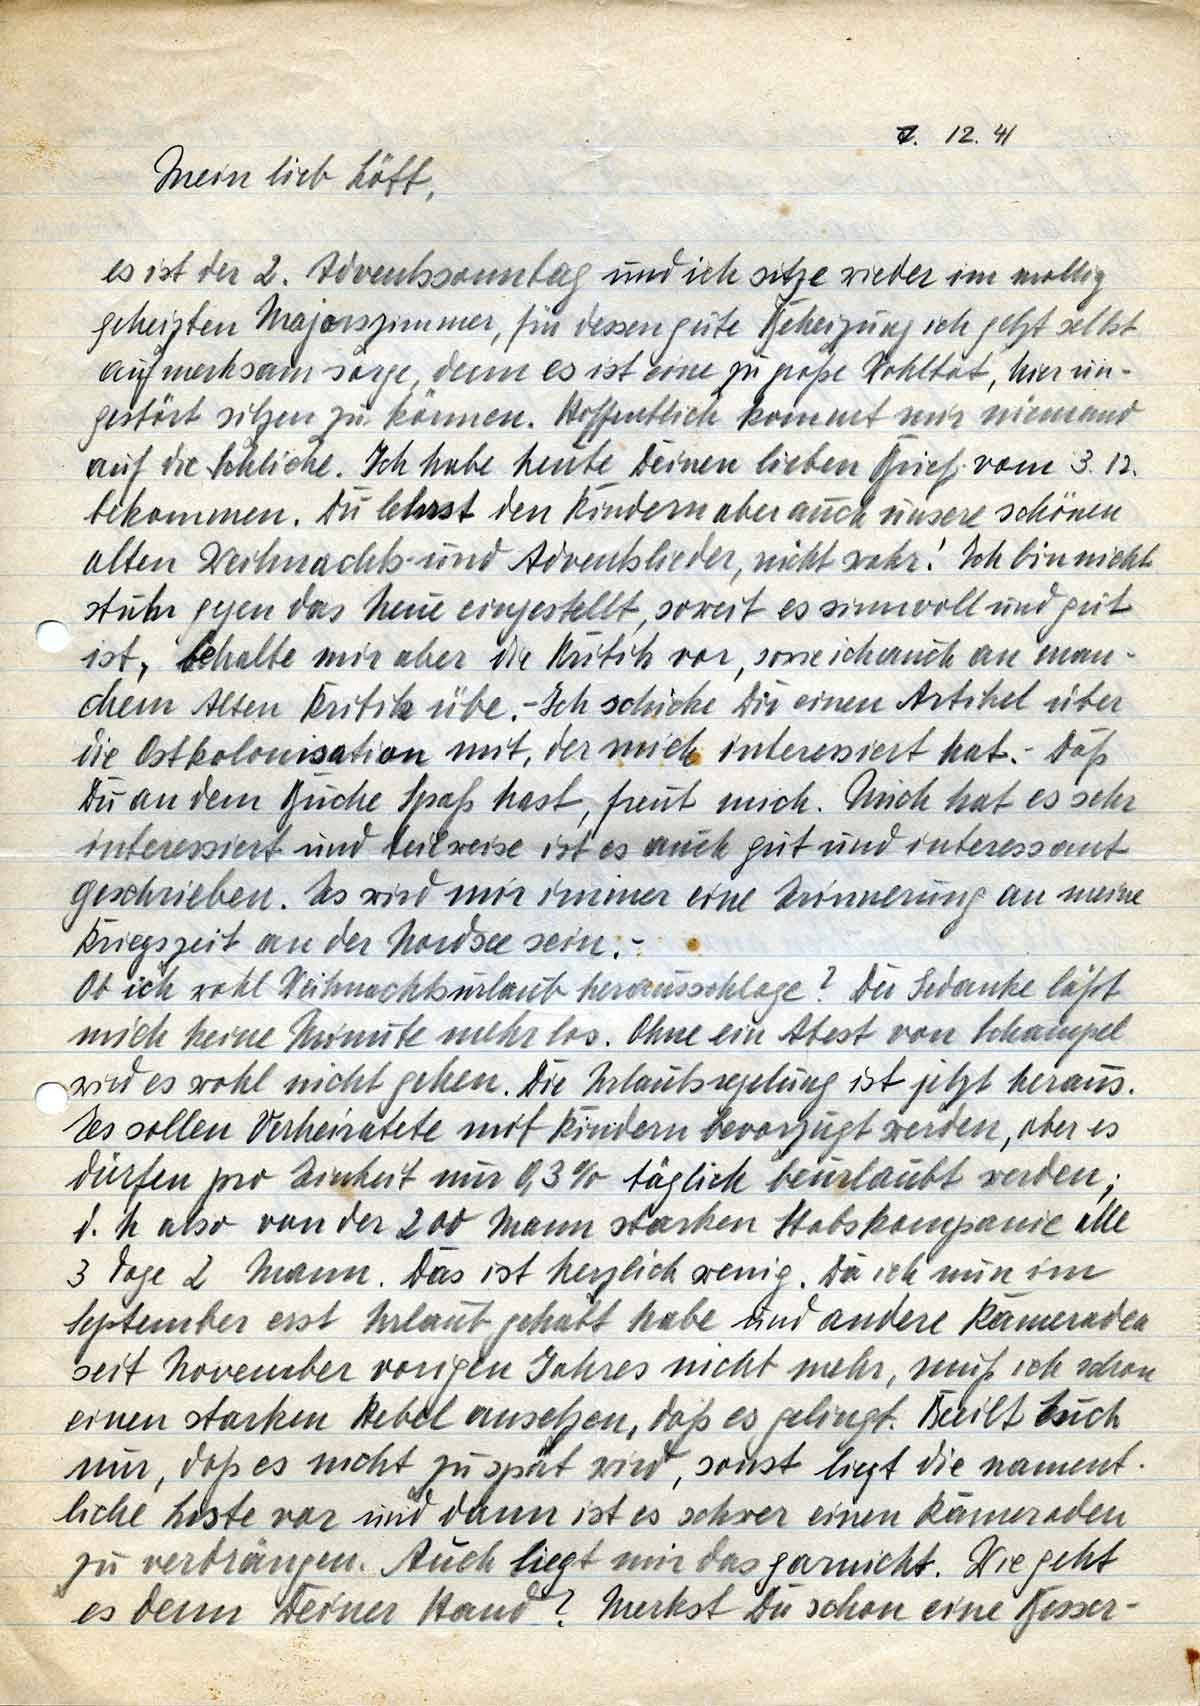 7. 12. 41
Mein lieb Löff,
es ist der 2. Adventssonntag und ich sitze wieder im mollig
geheizten Majorszimmer, für dessen gute Beheizung ich jetzt selbst
aufmerksam sorge, denn es ist eine zu große Wohltat, hier un-
gestört sitzen zu können. Hoffentlich kommt mir niemand
auf die Schliche. Ich habe heute Deinen lieben Brief vom 3. 12.
bekommen. Du lehrst den Kindern aber auch unsere schönen
alten Weihnachts- und Adventslieder, nicht wahr! Ich bin nicht
stuhr gegen das Neue eingestellt, soweit es sinnvoll und gut
ist, behalte mir aber die Kritik vor, sowie ich auch an man-
chem Alten Kritik übe.- Ich schicke Dir einen Artikel über
die Ostkolonisation mit, der mich interessiert hat.- Daß
Du an dem Buche Spaß hast, freut mich. Mich hat es sehr
interessiert und teilweise ist es auch gut und interessant
geschrieben. Es wird mir immer eine Erinnerung an meine
Kriegszeit an der Nordsee sein.-
Ob ich wohl Weihnachtsurlaub herausschlage? Der Gedanke läßt
mich keine Minute mehr los. Ohne ein Atest von Schampel
wird es wohl nicht gehen. Die Urlaubsregelung ist jetzt heraus.
Es sollen Verheiratete mit Kindern bevorzugt werden, aber es
dürfen pro Einheit nur 0,3 % täglich beurlaubt werden;
d. h also von der 200 Mann starken Stabskompanie alle
3 Tage 2 Mann. Das ist herzlich wenig. Da ich nun im
September erst Urlaub gehabt habe und andere Kameraden
seit November vorigen Jahres nicht mehr, muß ich schon
einen starken Hebel ansetzen, daß es gelingt. Beeilt Euch
nur, daß es nicht zu spät wird, sonst liegt die nament-
liche Liste vor und dann ist es schwer einen Kameraden
zu verdrängen. Auch liegt mir das garnicht. Wie geht
es denn Deiner Hand? Merkst Du schon eine Besser-